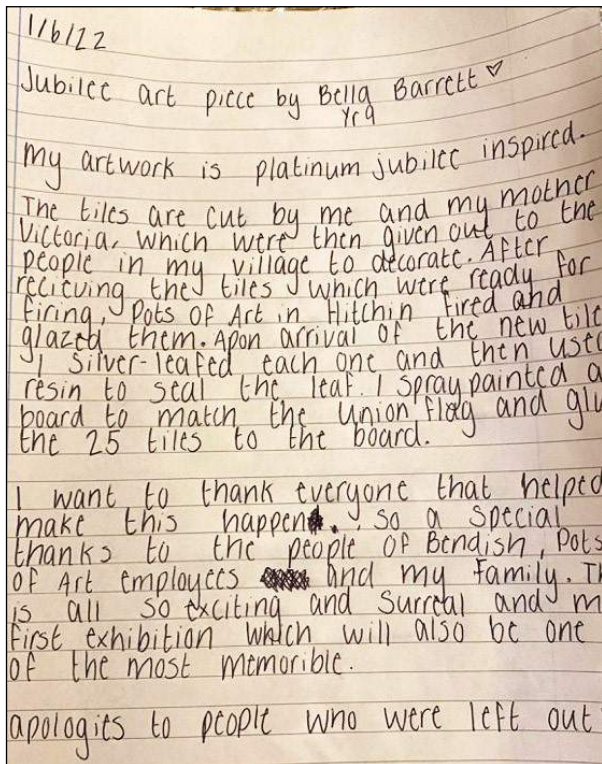 1/6/22
Jubilee art piece by Bella Barrett ♡
Yr9
My artwork is platinum jubilee inspired.
The tiles are cut by me and my mother
Victoria, which were then given out to the
people in my village to decorate. After
recieving the tiles which were ready for
firing, Pots of Art in Hitchin fired and
glazed them. Apon arrival of the new tile
I silver-leafed each one and then used
resin to seal the leaf. I spray painted a
board to match the Union flag and glu
the 25 tiles to the board.
I want to thank everyone that helped
make this happen. So a special
thanks to the people of Bendish, Pots
of Art employees and my family. Th
is all so exciting and surreal and m
first exhibition which will also be one
of the most memorible.
apologies to people who were left out